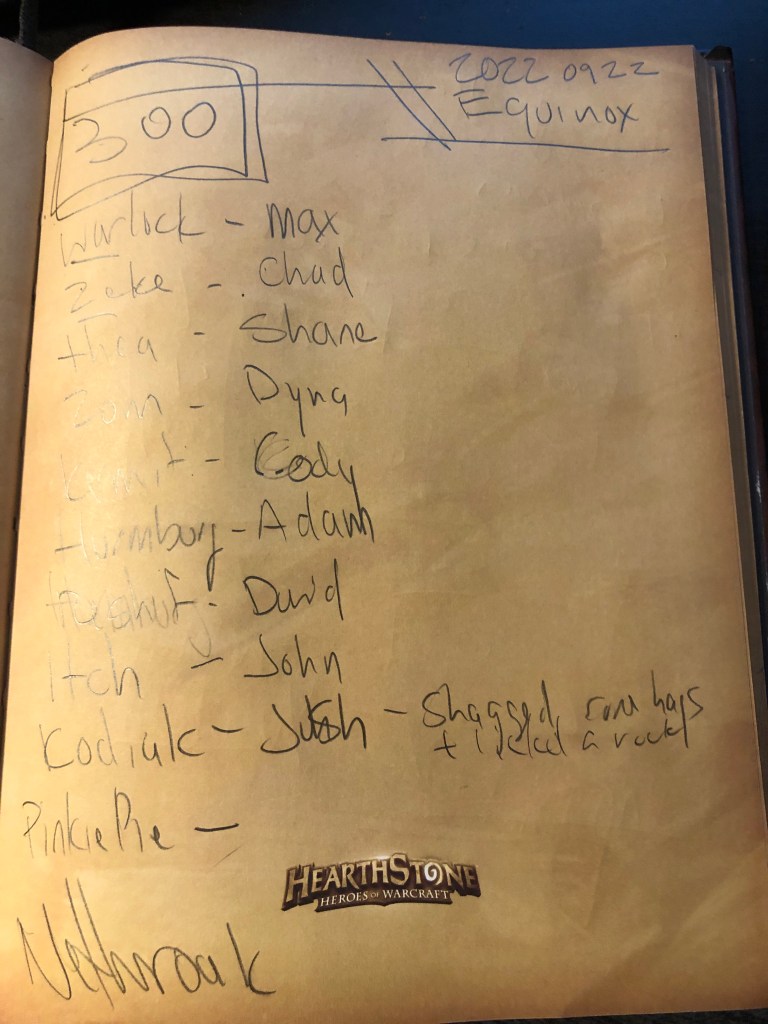 300
2022 09 22
Equinox
Warlock - Max
Zeke - Chad
Thea - Shane
Zonn - Dyna
Kermit - Cody
- Adam
- David
Itch - John
Kodiak - Josh - Shagged some hags
+ licked a rock
Pinkie Pie -
HEARTHSTONE
HEROES OF WARCRAFT
Nethroak